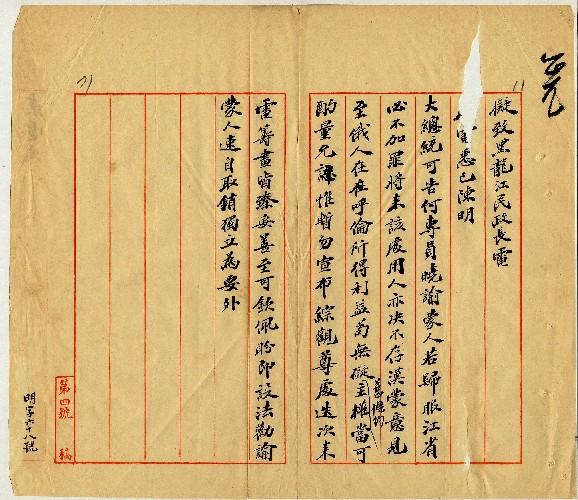 擬致黑龍江民政長電
電悉已陳明
大總統可告何專員曉諭蒙人若歸服江省
必不加罪將來該處用人亦决不存漢蒙意見
至俄人在在呼倫所得利益苟無礙主權當可
酌量允諾惟暫勿宣布綜觀尊處迭次來
電籌畫皆臻妥善至可欽佩盼即設法勸諭
蒙人速自取銷獨立為要外
第四號 稿
明字六十八號